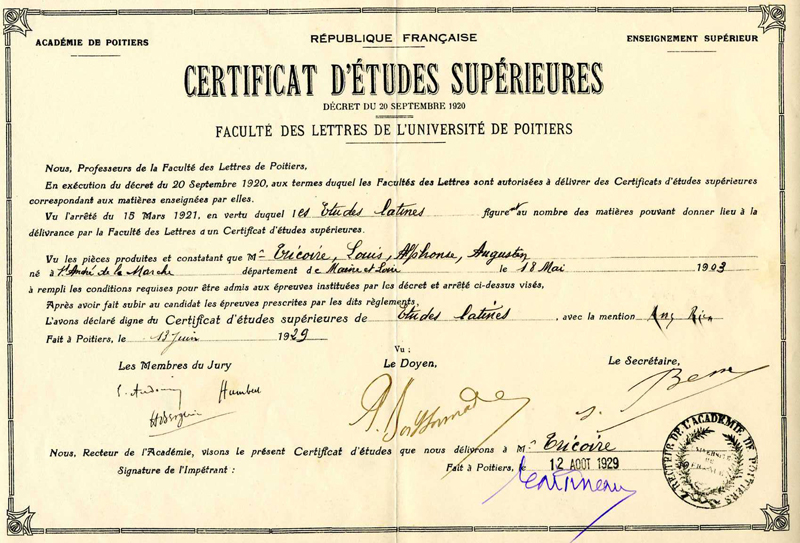 ACADÉMIE DE POITIERS
RÉPUBLIQUE FRANÇAISE
ENSEIGNEMENT SUPÉRIEUR
CERTIFICAT D'ÉTUDES SUPÉRIEURES
DÉCRET DU 20 SEPTEMBRE 1920
FACULTÉ DES LETTRES DE L'UNIVERSITÉ DE POITIERS
Nous, Professeurs de la Faculté des Lettres de Poitiers,
En exécution du décret du 20 Septembre 1920, aux termes duquel les Facultés des Lettres sont autorisées à délivrer des Certificats d'études supérieures
correspondant aux matières enseignées par elles.
Vu l'arrêté du 15 Mars 1921, en vertu duquel les Etudes latines figurent au nombre des matières pouvant donner lieu à la
délivrance par la Faculté des Lettres d'un Certificat d'études supérieures.
Vu les pièces produites et constatant que Mr Tricoire, Louis, Alphonse, Augustin
né à St André de la Marche département de Maine et Loire le 18 Mai 1903
a rempli les conditions requises pour être admis aux épreuves instituées par les décret et arrêté ci-dessus visés,
Après avoir fait subir au candidat les épreuves prescrites par les dits règlements,
L'avons déclaré digne du Certificat d'études supérieures de Etudes latines, avec la mention Ass Bien
Fait à Poitiers, le 13 Juin 1929
Vu :
Les Membres du Jury
Le Doyen,
Le Secrétaire,
Humbert
Nous, Recteur de l'Académie, visons le présent Certificat d'études que nous délivrons à Mr Tricoire
Signature de l'Impétrant :
Fait à Poitiers, le 12 AOUT 1929
RECTEUR DE L'ACADÉMIE DE POITIERS
UNIVERSITÉ DE FRANCE